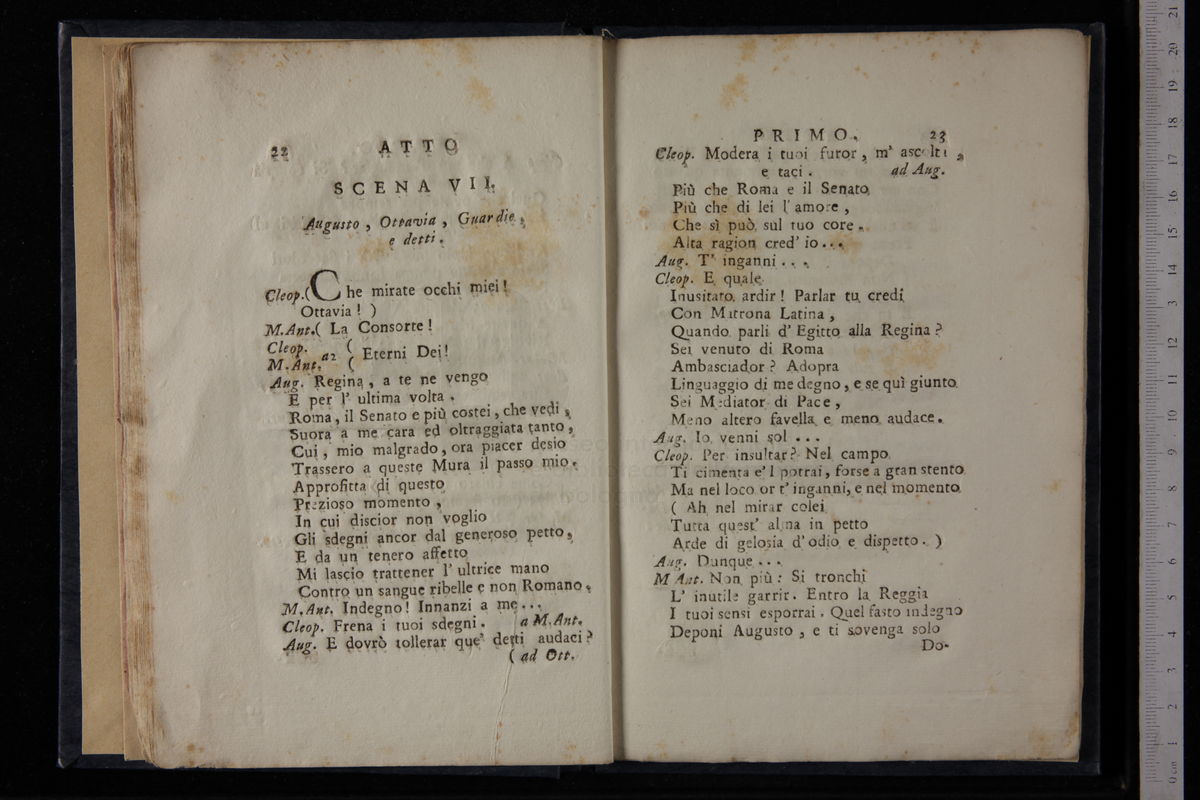 22 ATTO
SCENA VII.
Augusto, Ottavia, Guardie,
e detti.
Cleop. ( Che mirate occhi miei!
Ottavia! )
M.Ant. ( La Consorte!
Cleop. a2 ( Eterni Dei!
M.Ant. (
Aug. Regina, a te ne vengo
E per l' ultima volta.
Roma, il Senato e più costei, che vedi,
Suora a me cara ed oltraggiata tanto,
Cui, mio malgrado, ora piacer desio
Trassero a queste Mura il passo mio.
Approfitta di questo
Prezioso momento,
In cui discior non voglio
Gli sdegni ancor dal generoso petto,
E da un tenero affetto
Mi lascio trattener l' ultrice mano
Contro un sangue ribelle e non Romano.
M.Ant. Indegno! Innanzi a me...
Cleop. Frena i tuoi sdegni. a M.Ant.
Aug. E dovrò tollerar que' detti audaci?
( ad Ott.
PRIMO. 23
Cleop. Modera i tuoi furor, m' ascolti,
e taci. ad Aug.
Più che Roma e il Senato
Più che di lei l' amore,
Che sì può sul tuo core.
Alta ragion cred' io...
Aug. T' inganni...
Cleop. E quale
Inusitato ardir! Parlar tu credi
Con Matrona Latina,
Quando parli d' Egitto alla Regina?
Sei venuto di Roma
Ambasciador? Adopra
Linguaggio di me degno, e se quì giunto
Sei Mediator di Pace,
Meno altero favella e meno audace.
Aug. Io venni sol...
Cleop. Per insultar? Nel campo
Ti cimenta e' l potrai, forse a gran stento
Ma nel loco or t' inganni, e nel momento
( Ah nel mirar colei
Tutta quest' alma in petto
Arde di gelosia d' odio e dispetto. )
Aug. Dunque...
M Ant. Non più: Si tronchi
L' inutile garrir. Entro la Reggia
I tuoi sensi esporrai. Quel fasto indegno
Deponi Augusto, e ti sovenga solo
Do-